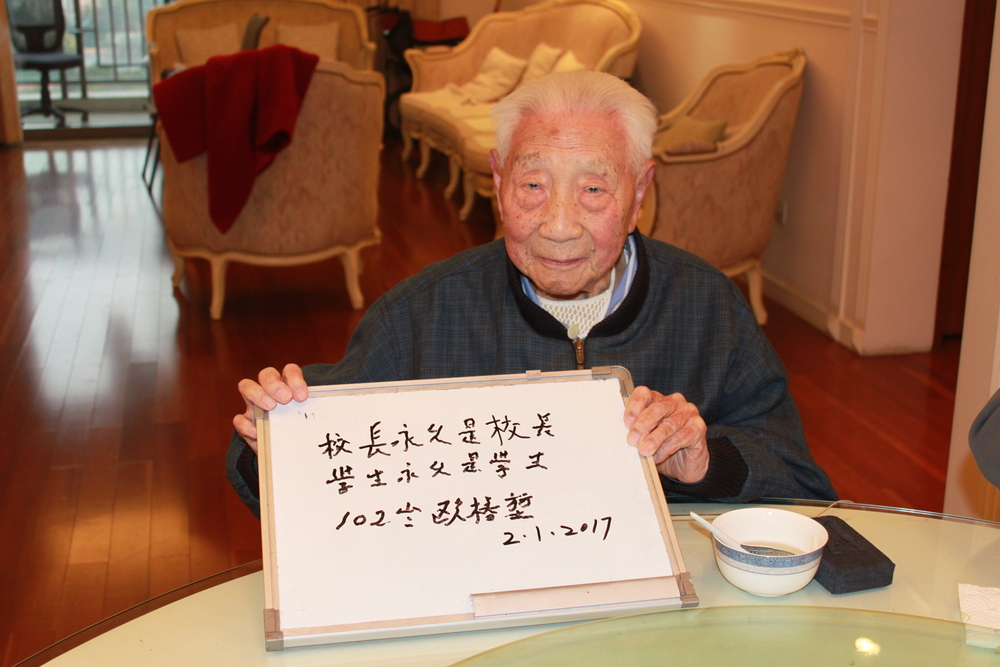 校長永久是校長
學生永久是學生
102岁 欧椿
2.1.2017